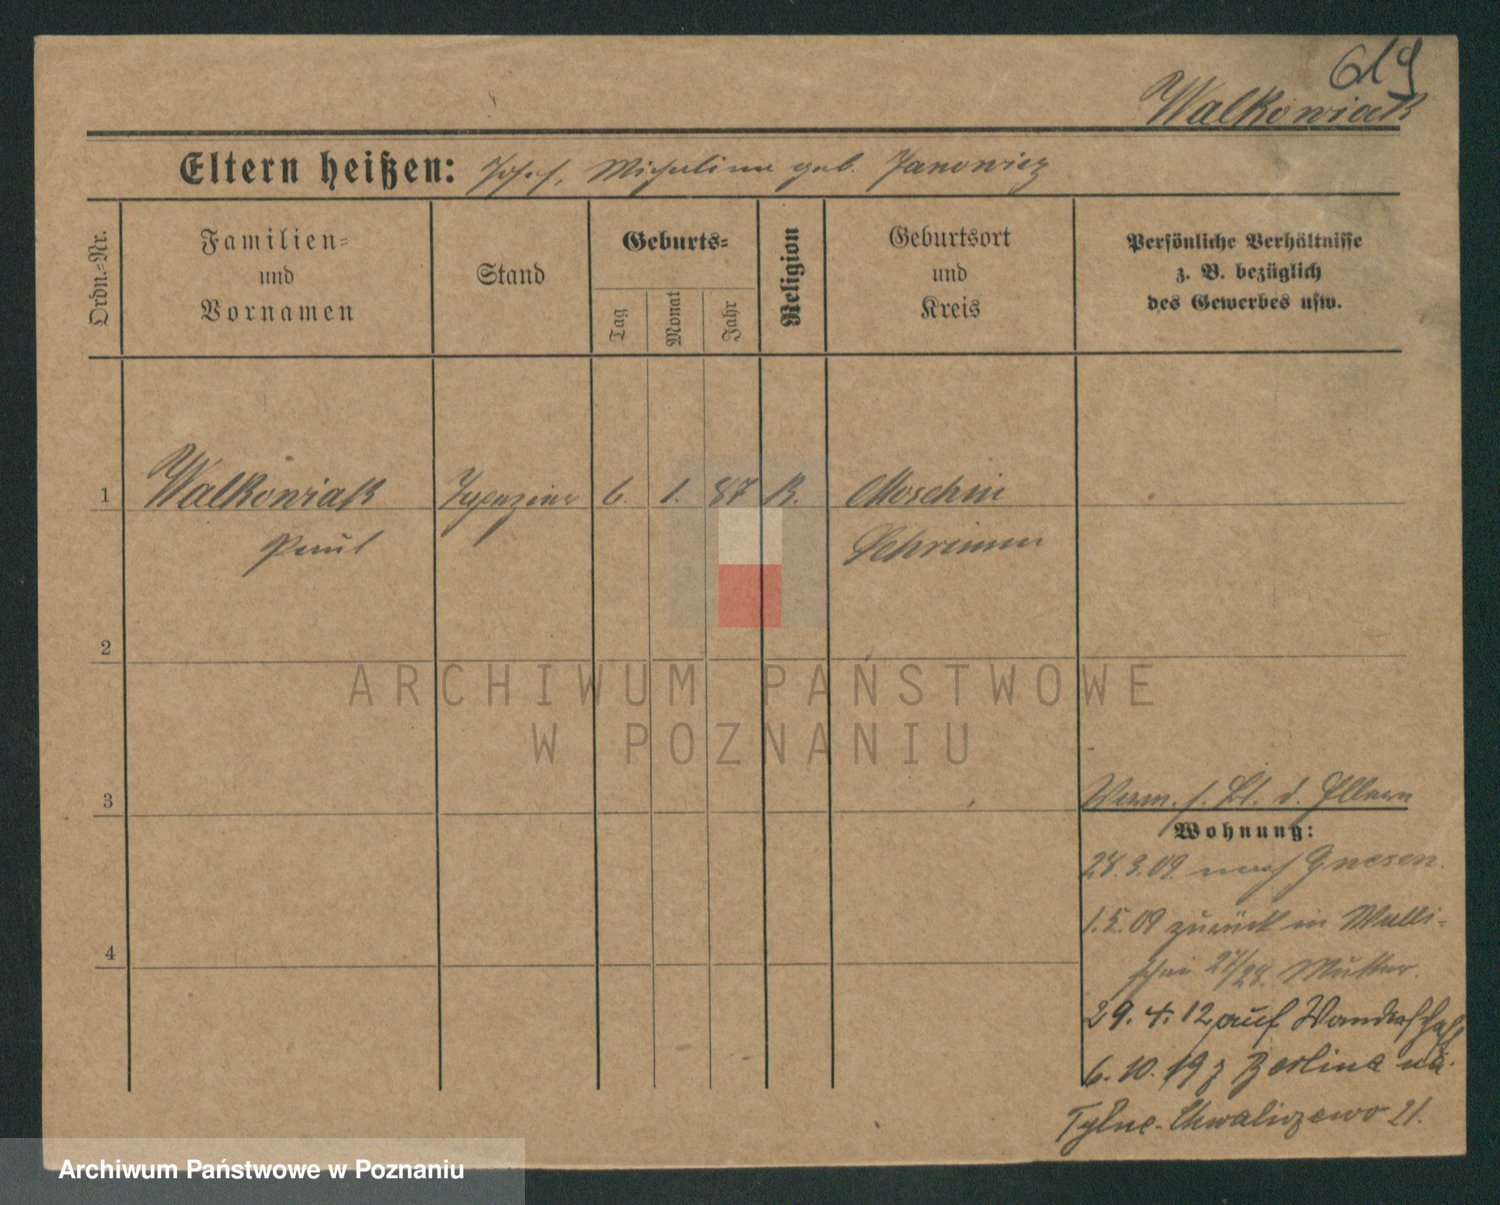 619
Walkowiak
Eltern heißen: Josef, Michalina geb. Janowicz
Ordn.-Nr.
Familien-
und
Vornamen
Stand
Geburts-
Tag
Monat
Jahr
Religion
Geburtsort
und
Kreis
Persönliche Verhältnisse
z. B. bezüglich
des Gewerbes usw.
1 Walkowiak Tapezierer 6. 1. 87 K. Moschin
Paul Schrimm
2
ARCHIWUM PAŃSTWOWE
W POZNANIU
3
Verm. s. Bl. d. Eltern
Wohnung:
28.3.09. nach Gnesen.
1.5.09 zurück in Walli-
schei 27/28. Mutter.
4
29.4.12 auf Wanderschaft
6.10.19 z Berlina na
Tylne-Chwaliszewo 21.
Archiwum Państwowe w Poznaniu